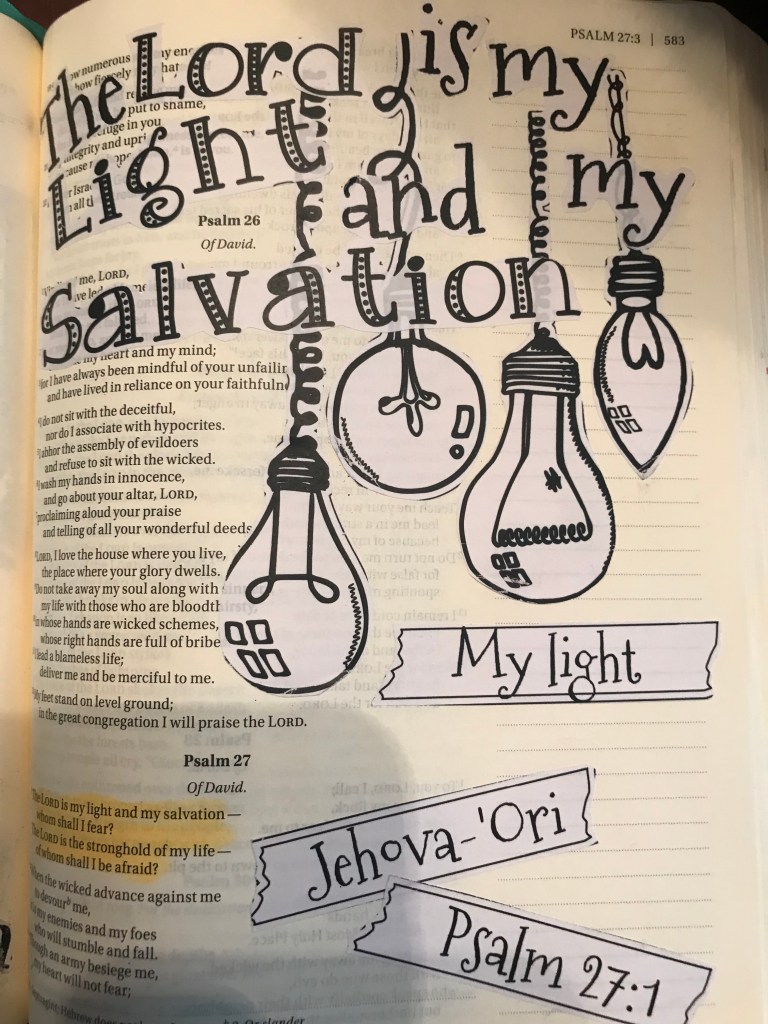 PSALM 27:3 | 583
The Lord is my
Light and my
Salvation
put to shame,
in you
Psalm 26
Of David.
me, LORD,
my heart and my mind;
for I have always been mindful of your
and have lived in reliance on your
I do not sit with the deceitful,
nor do I associate with hypocrites.
I abhor the assembly of evildoers
and refuse to sit with the wicked.
I wash my hands in innocence,
and go about your altar, LORD,
proclaiming aloud your praise
and telling of all your wonderful deeds
LORD, I love the house where you live,
the place where your glory dwells.
Do not take away my soul along with
my life with those who are
in whose hands are wicked schemes,
whose right hands are full of bribe
I lead a blameless life;
deliver me and be merciful to me.
My feet stand on level ground;
in the great congregation I will praise the LORD.
My light
Psalm 27
Of David.
The LORD is my light and my salvation—
whom shall I fear?
The LORD is the stronghold of my life—
of whom shall I be afraid?
When the wicked advance against me
to devour me,
my enemies and my foes
who will stumble and fall.
Though an army besiege me,
my heart will not fear;
Jehova-'Ori
Psalm 27:1